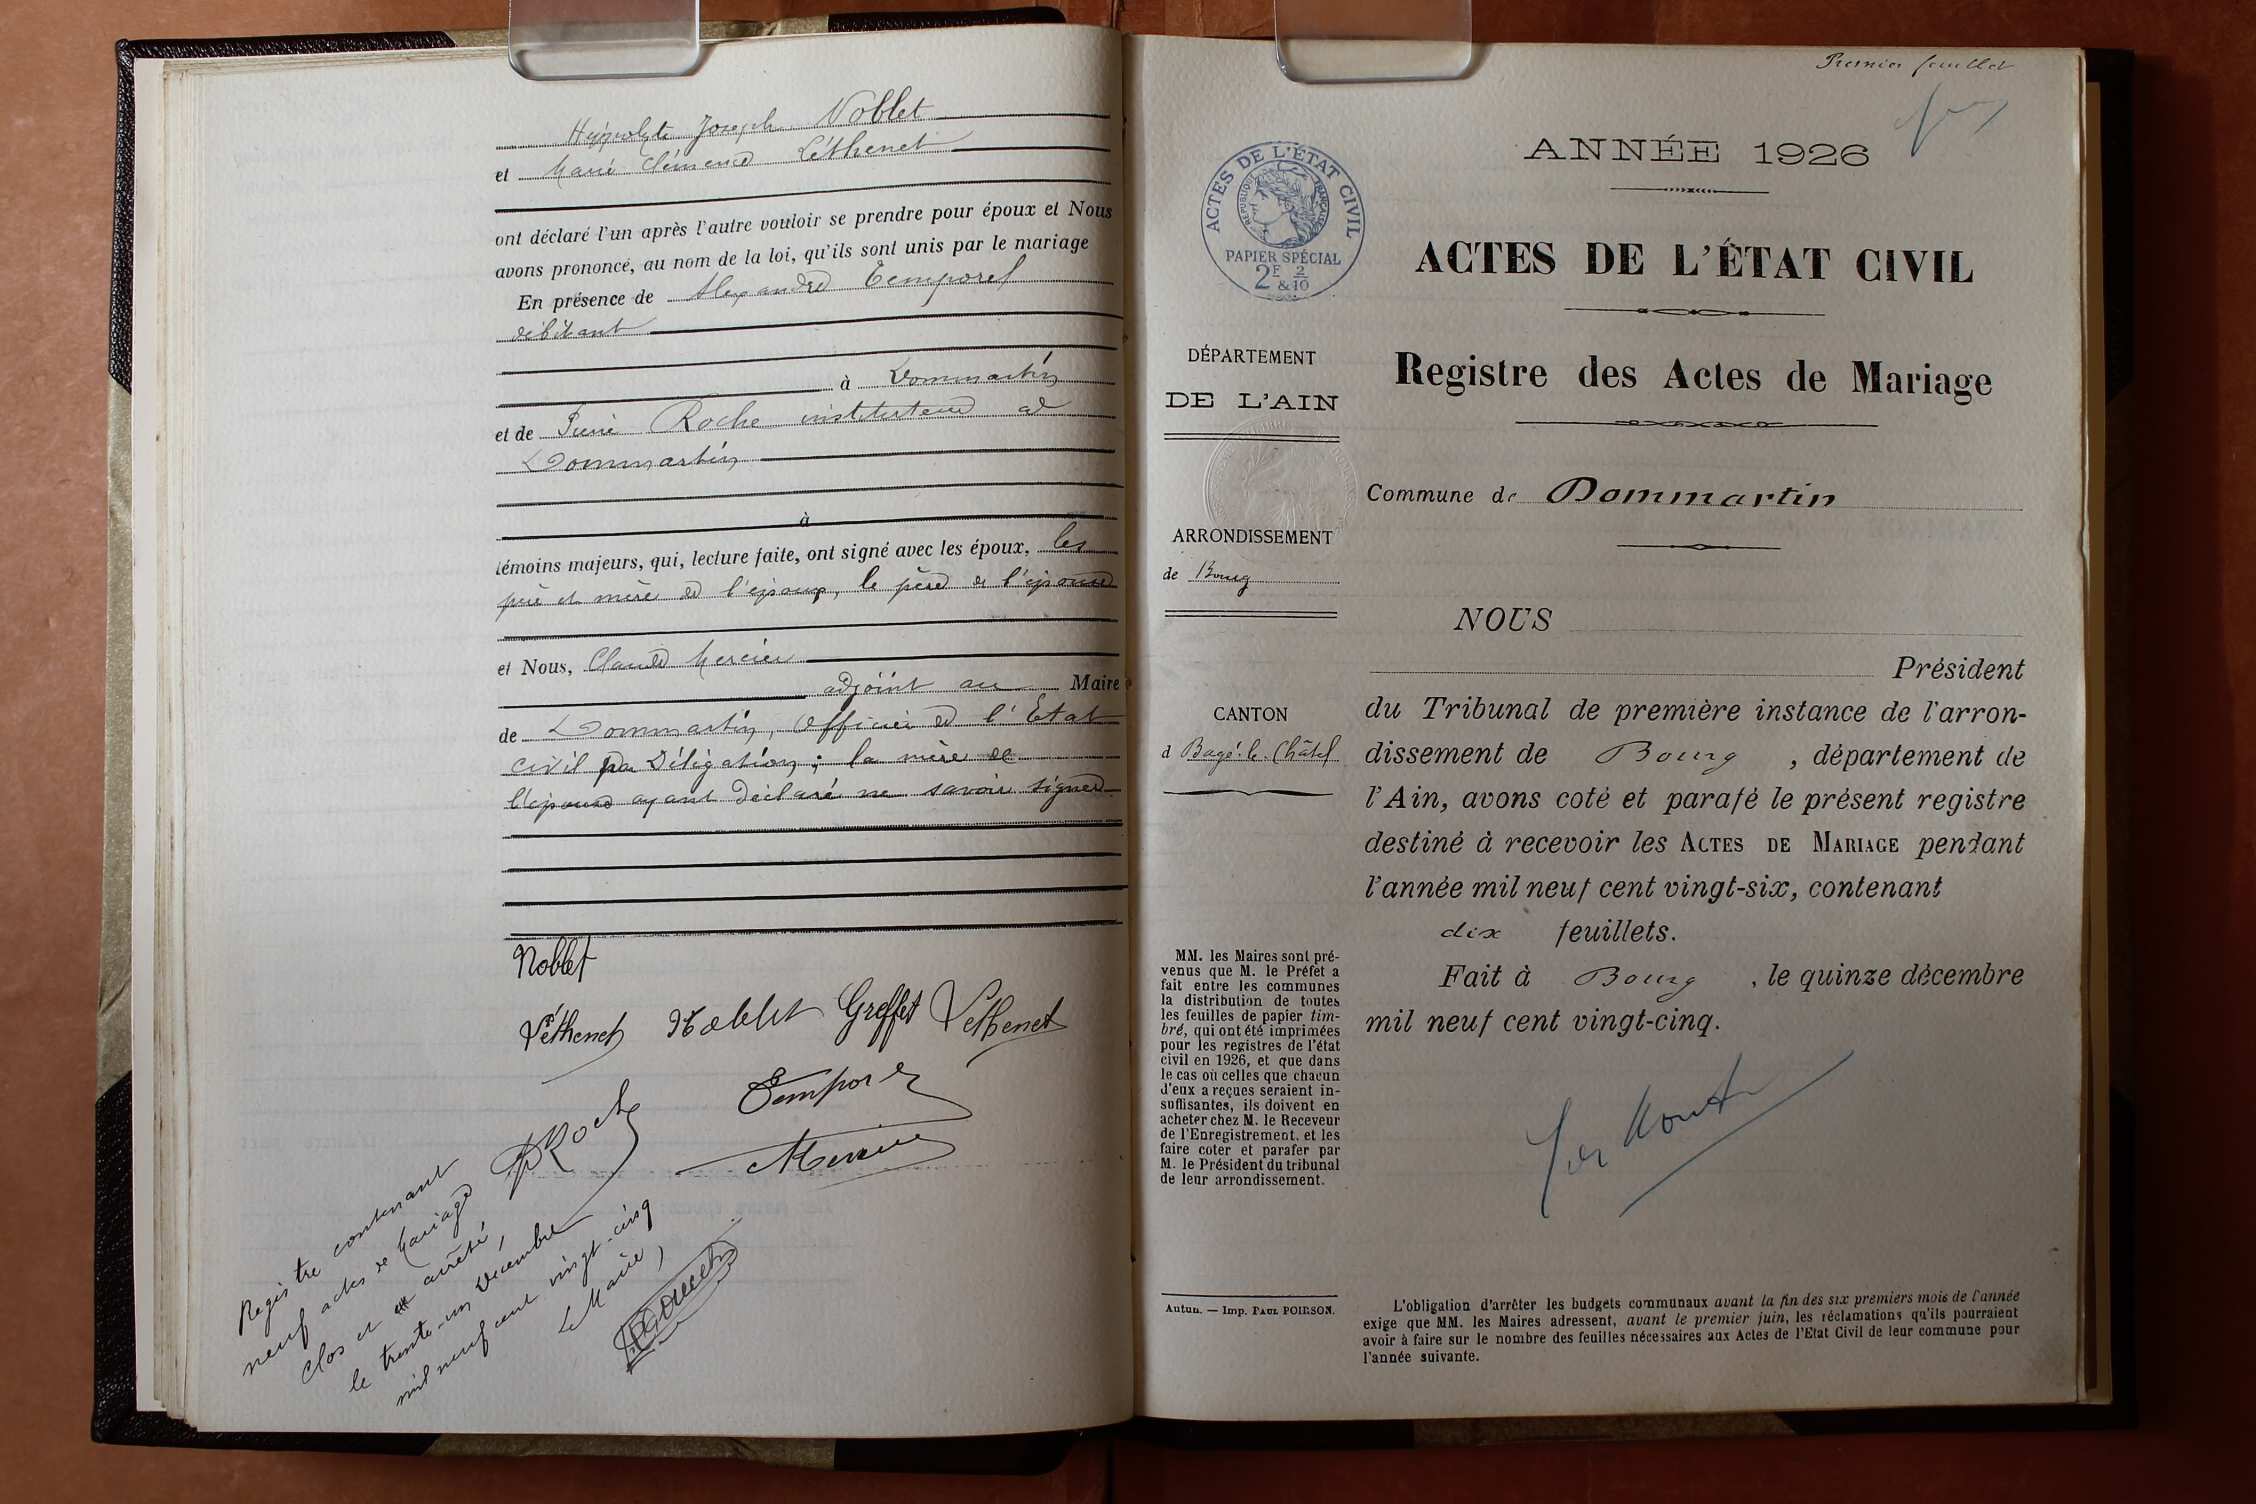 Hyppolyte Joseph Noblet
et Marie Clémence Véthenet
ont déclaré l'un après l'autre vouloir se prendre pour époux et Nous
avons prononcé, au nom de la loi, qu'ils sont unis par le mariage
En présence de Alexandre Temporel
débitant
à Dommartin
et de Pierre Roche instituteur à
Dommartin
à
témoins majeurs, qui, lecture faite, ont signé avec les époux, les
père et mère de l'époux, le père de l'épouse
et Nous, Claude Mercier
adjoint au Maire
de Dommartin, officier de l'Etat
civil par Délégation ; la mère de
l'épouse ayant déclaré ne savoir signer
Noblet
Véthenet Noblet Greffet Véthenet
Roche Temporel
Mercier
Registre contenant
neuf actes de Mariage
clos et arrêté,
le trente-un Décembre
mil neuf cent vingt-cinq
Le Maire,
Premier feuillet
ANNÉE 1926
ACTES DE L'ÉTAT CIVIL
RÉPUBLIQUE FRANÇAISE
PAPIER SPÉCIAL
2F & 2/10
ACTES DE L'ÉTAT CIVIL
Registre des Actes de Mariage
DÉPARTEMENT
DE L'AIN
Commune de Dommartin
ARRONDISSEMENT
de Bourg
CANTON
d Bagé-le-Châtel
NOUS
Président
du Tribunal de première instance de l'arron-
dissement de Bourg, département de
l'Ain, avons coté et parafé le présent registre
destiné à recevoir les ACTES DE MARIAGE pendant
l'année mil neuf cent vingt-six, contenant
dix feuillets.
Fait à Bourg, le quinze décembre
mil neuf cent vingt-cinq.
MM. les Maires sont pré-
venus que M. le Préfet a
fait entre les communes
la distribution de toutes
les feuilles de papier tim-
bré, qui ont été imprimées
pour les registres de l'état
civil en 1926, et que dans
le cas où celles que chacun
d'eux a reçues seraient in-
suffisantes, ils doivent en
acheter chez M. le Receveur
de l'Enregistrement, et les
faire coter et parafer par
M. le Président du tribunal
de leur arrondissement.
Autun. — Imp. PAUL POIRSON.
L'obligation d'arrêter les budgets communaux avant la fin des six premiers mois de l'année
exige que MM. les Maires adressent, avant le premier juin, les réclamations qu'ils pourraient
avoir à faire sur le nombre des feuilles nécessaires aux Actes de l'Etat Civil de leur commune pour
l'année suivante.